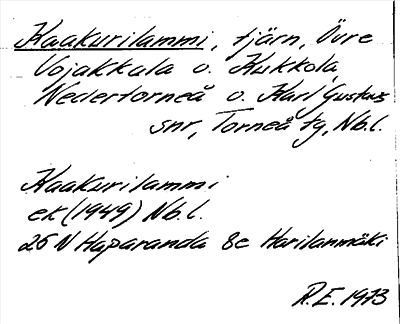 Kaakurilammi, tjärn, Övre
Vojakkala o. Kukkola,
Nedertorneå o. Karl Gustavs
snr, Torneå tg, Nb.l.
Kaakurilammi
ek (1949) Nb.l.
26 N Haparanda 8c Harilanmäki
R.E. 1973